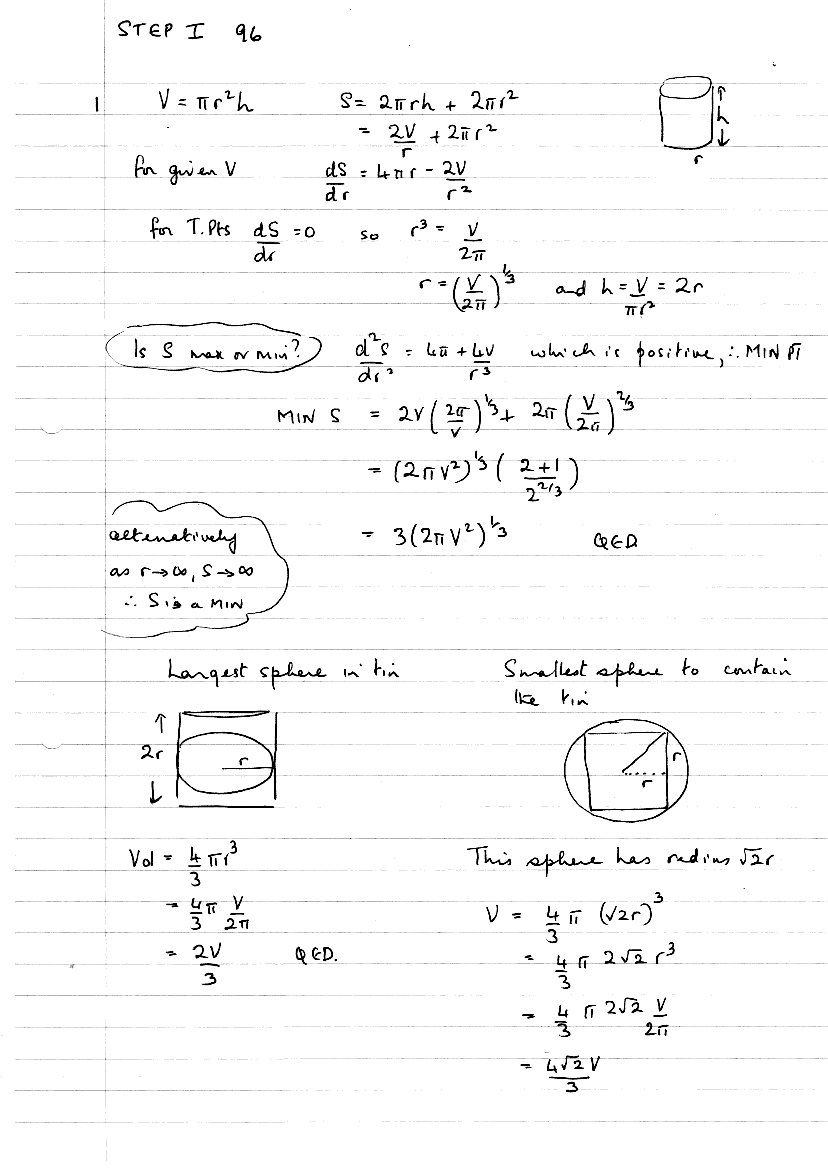 STEP I 96
1 V = πr²h S = 2πrh + 2πr²
= 2V/r + 2πr²
h
r
for given V dS/dr = 4πr - 2V/r²
for T.Pts dS/dr = 0 so r³ = V/2π
r = (V/2π)^1/3 and h = V/πr² = 2r
Is S max or min? d²S/dr² = 4π + 4V/r³ which is positive, ∴ MIN PT
MIN S = 2V(2π/V)^1/3 + 2π(V/2π)^2/3
= (2πV²)^1/3 (2+1/2^2/3)
= 3(2πV²)^1/3 QED
alternatively
as r→∞, S→∞
∴ S is a MIN
Largest sphere in tin
2r
r
Vol = 4/3 πr³
= 4/3 π V/2π
= 2V/3 QED.
Smallest sphere to contain
the tin
r
r
This sphere has radius √2r
V = 4/3 π (√2r)³
= 4/3 π 2√2 r³
= 4/3 π 2√2 V/2π
= 4√2V/3